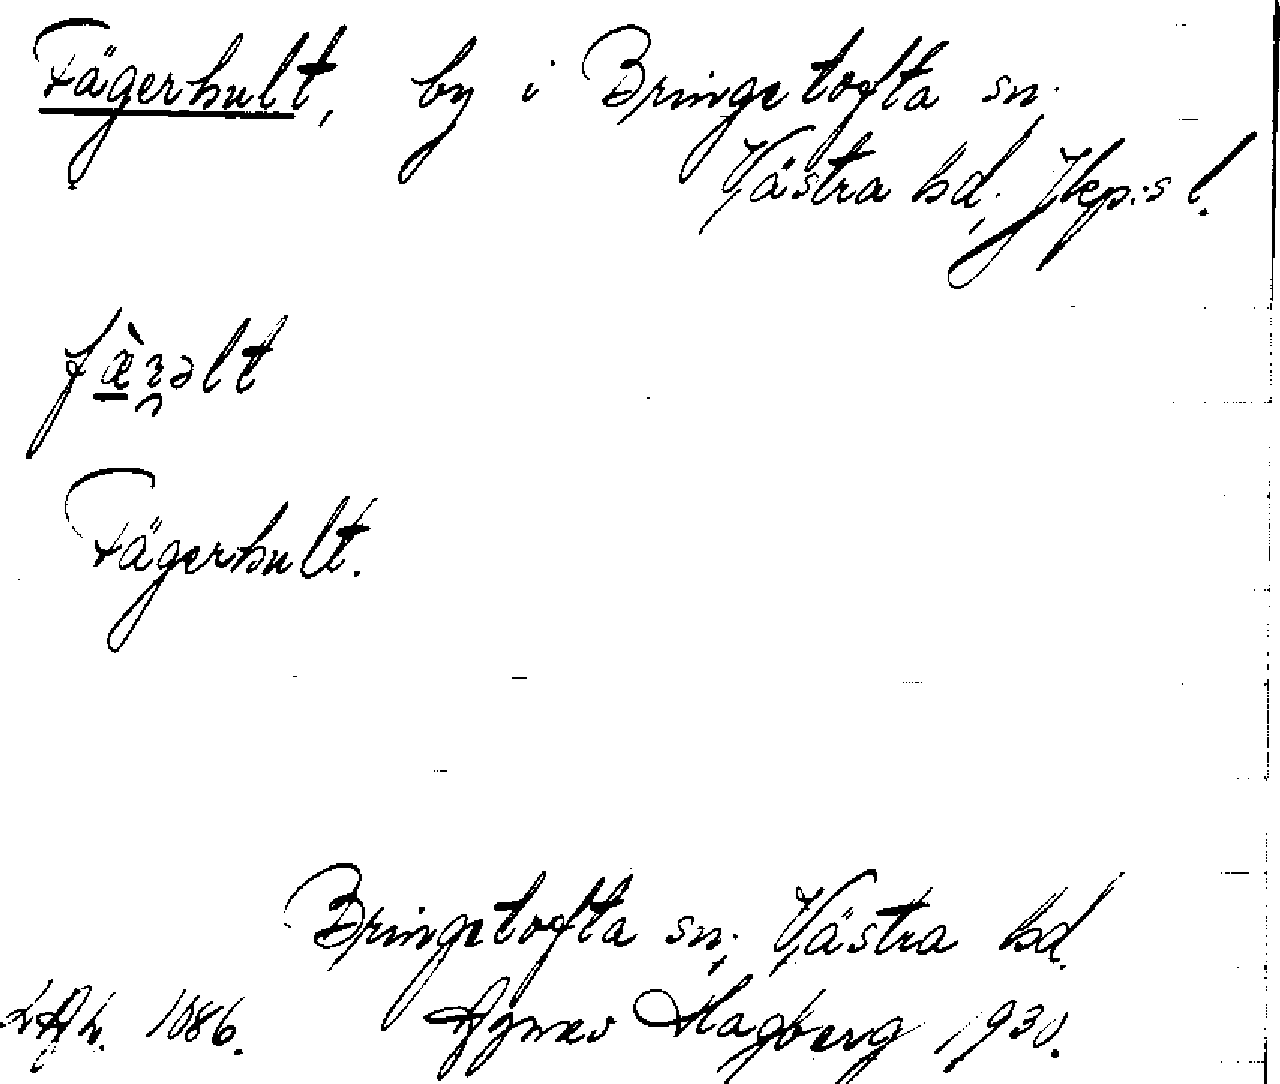 Fägerhult, by i Bringetofta sn.
Västra hd, Jkp:s l.
fæ̀rəlt
Fägerhult.
Bringetofta sn, Västra hd.
1086. Agnar Hagberg 1930.